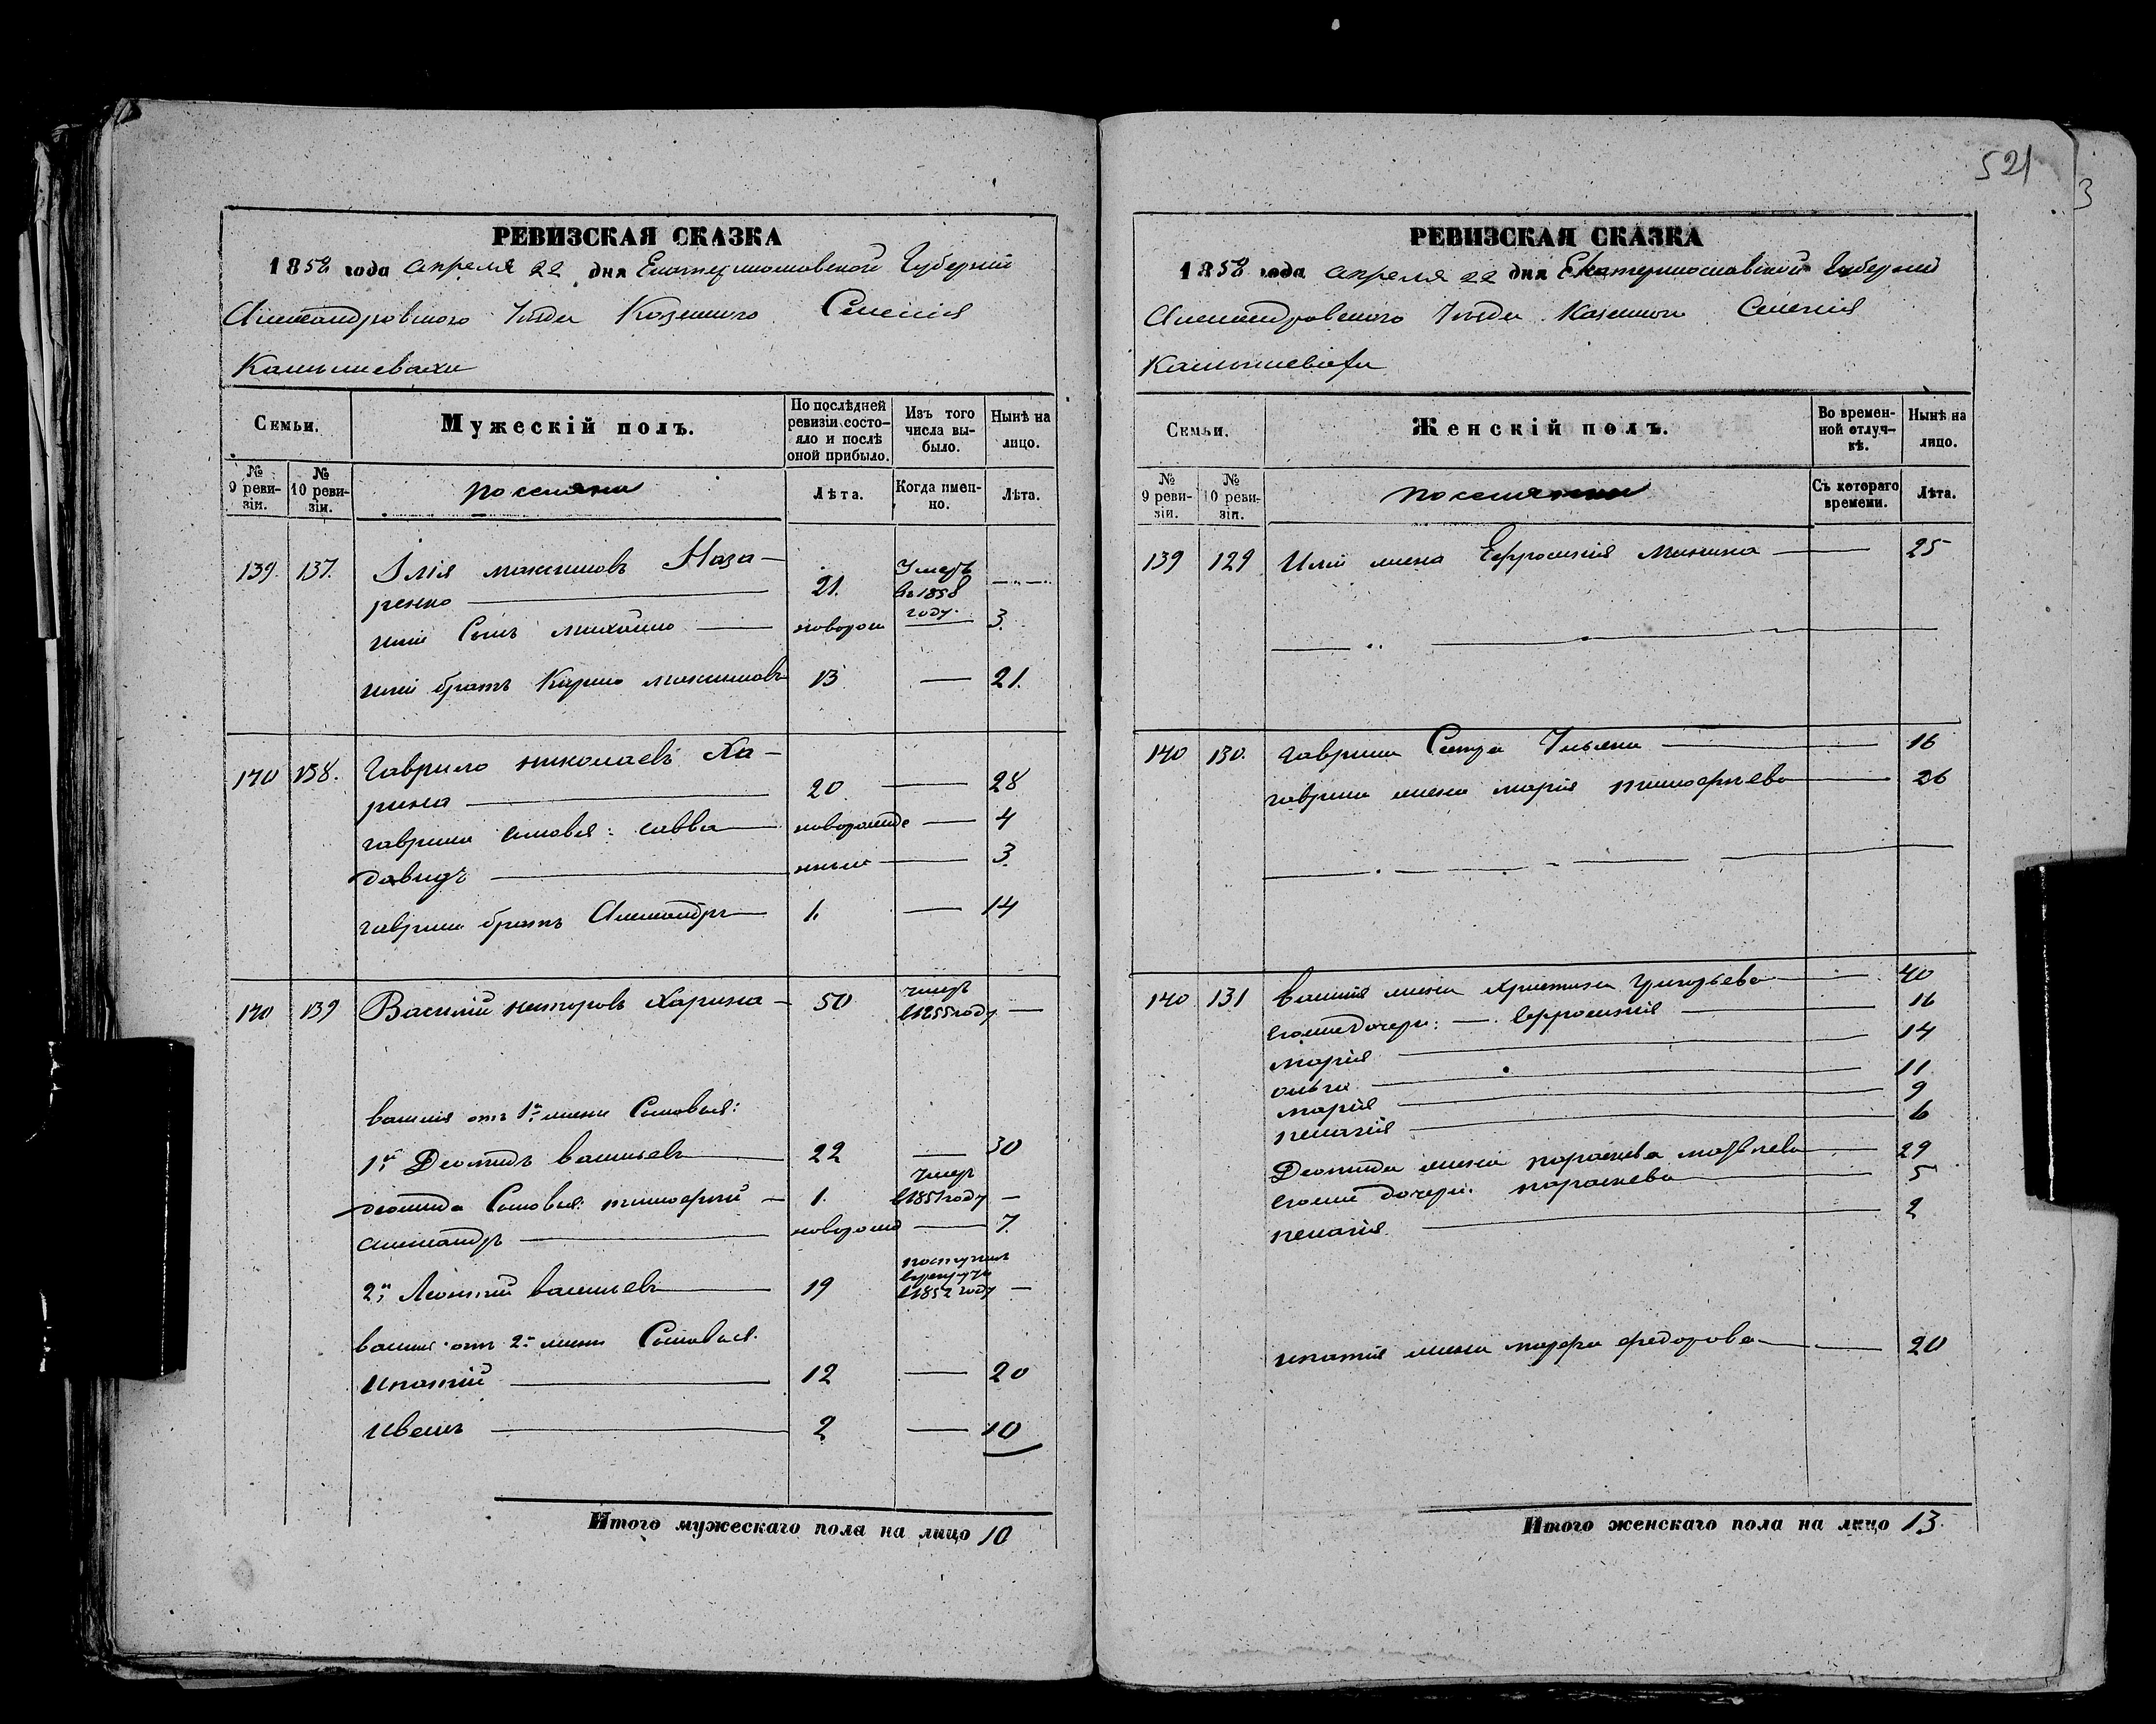 РЕВИЗСКАЯ СКАЗКА
1858 года апреля 22 дня Екатеринославской Губерніи
Александровского Уѣзда Казенного Селенія
Камышевахи
Семьи.
Мужескій полъ.
По послѣдней ревизіи состояло и послѣ оной прибыло.
Изъ того числа выбыло.
Нынѣ на лицо.
№ 9 ревизіи.
№ 10 ревизіи.
поселяни
Лѣта.
Когда именно.
Лѣта.
139. 137. Илія максимовъ Наза-
ренко 21. Умеръ в 1858 году.
иліи Сынъ михайло новорож 3.
иліи братъ Карпо максимовъ 13 21.
140 138. Гаврило николаевъ Ха-
рина 20 28
гаврила сыновя: савва новорожде 4
давидъ нныи 3.
гаврила братъ Александръ 1. 14
140 139 Василій несторовъ Харина 50 умеръ в 1855 году
василія отъ 1й жены Сыновья:
1й Деомидъ васильевъ 22 30
деомида Сыновья: тимофей 1. умер в 1851 году
александръ новорожд 7.
2й Леонтий васильевъ 19 поступил в рекруты в 1852 году
василія отъ 2й жены Сыновья.
ипатій 12 20
иванъ 2 10
Итого мужескаго пола на лицо 10
521
3
РЕВИЗСКАЯ СКАЗКА
1858 года апреля 22 дня Екатеринославской Губерніи
Александровского Уѣзда Казенного Селенія
Камышевахи
Семьи.
Женскій полъ.
Во временной отлучкѣ.
Нынѣ на лицо.
№ 9 ревизіи.
№ 10 ревизіи.
поселянки
Съ котораго времени.
Лѣта.
139 129 Иліи жена Ефросинія минина 25
140 130. гаврила Сестра Ульяна 16
гаврила жена марія тимофеева 26
140 131 василія жена христина григорьева 40
егоже дочери: ефросинія 16
марія 14
ольга 11
марія 9
пелагія 6
Деомида жена параскева матвеева 29
егоже дочери: параскева 5
пелагія 2
ипатія жена марфа федорова 20
Итого женскаго пола на лицо 13.